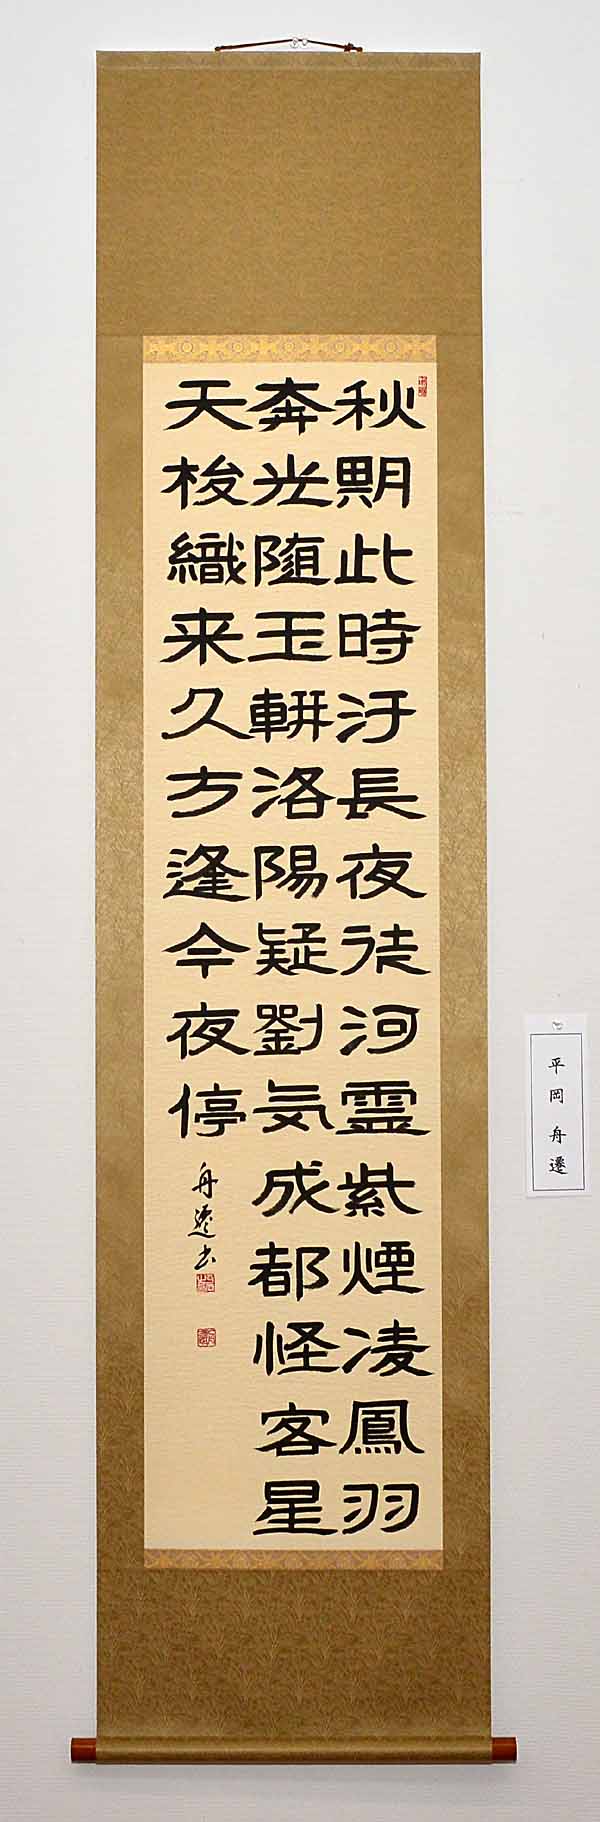 秋期此時汙長夜徒河霊紫煙凌鳳羽
奔光随玉軿洛陽疑劉気成都怪客星
天梭織来久方逢今夜停
舟遷書
平岡舟遷